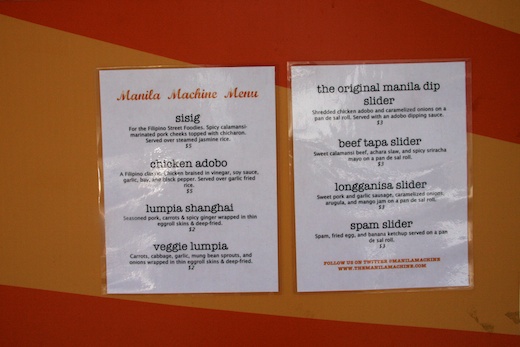 Manila Machine Menu
sisig
For the Filipino Street Foodies. Spicy calamansi-
marinated pork cheeks topped with chicharon.
Served over steamed jasmine rice.
$5
chicken adobo
A Filipino classic. Chicken braised in vinegar, soy sauce,
garlic, bay, and black pepper. Served over garlic fried
rice.
$5
lumpia shanghai
Seasoned pork, carrots & spicy ginger wrapped in thin
eggroll skins & deep-fried.
$2
veggie lumpia
Carrots, cabbage, garlic, mung bean sprouts, and
onions wrapped in thin eggroll skins & deep-fried.
$2
the original manila dip
slider
Shredded chicken adobo and caramelized onions on a
pan de sal roll. Served with an adobo dipping sauce.
$3
beef tapa slider
Sweet calamansi beef, achara slaw, and spicy sriracha
mayo on a pan de sal roll.
$3
longganisa slider
Sweet pork and garlic sausage, caramelized onions,
arugula, and mango jam on a pan de sal roll.
$3
spam slider
Spam, fried egg, and banana ketchup served on a pan
de sal roll.
$3
FOLLOW US ON TWITTER @MANILAMACHINE
WWW.THEMANILAMACHINE.COM